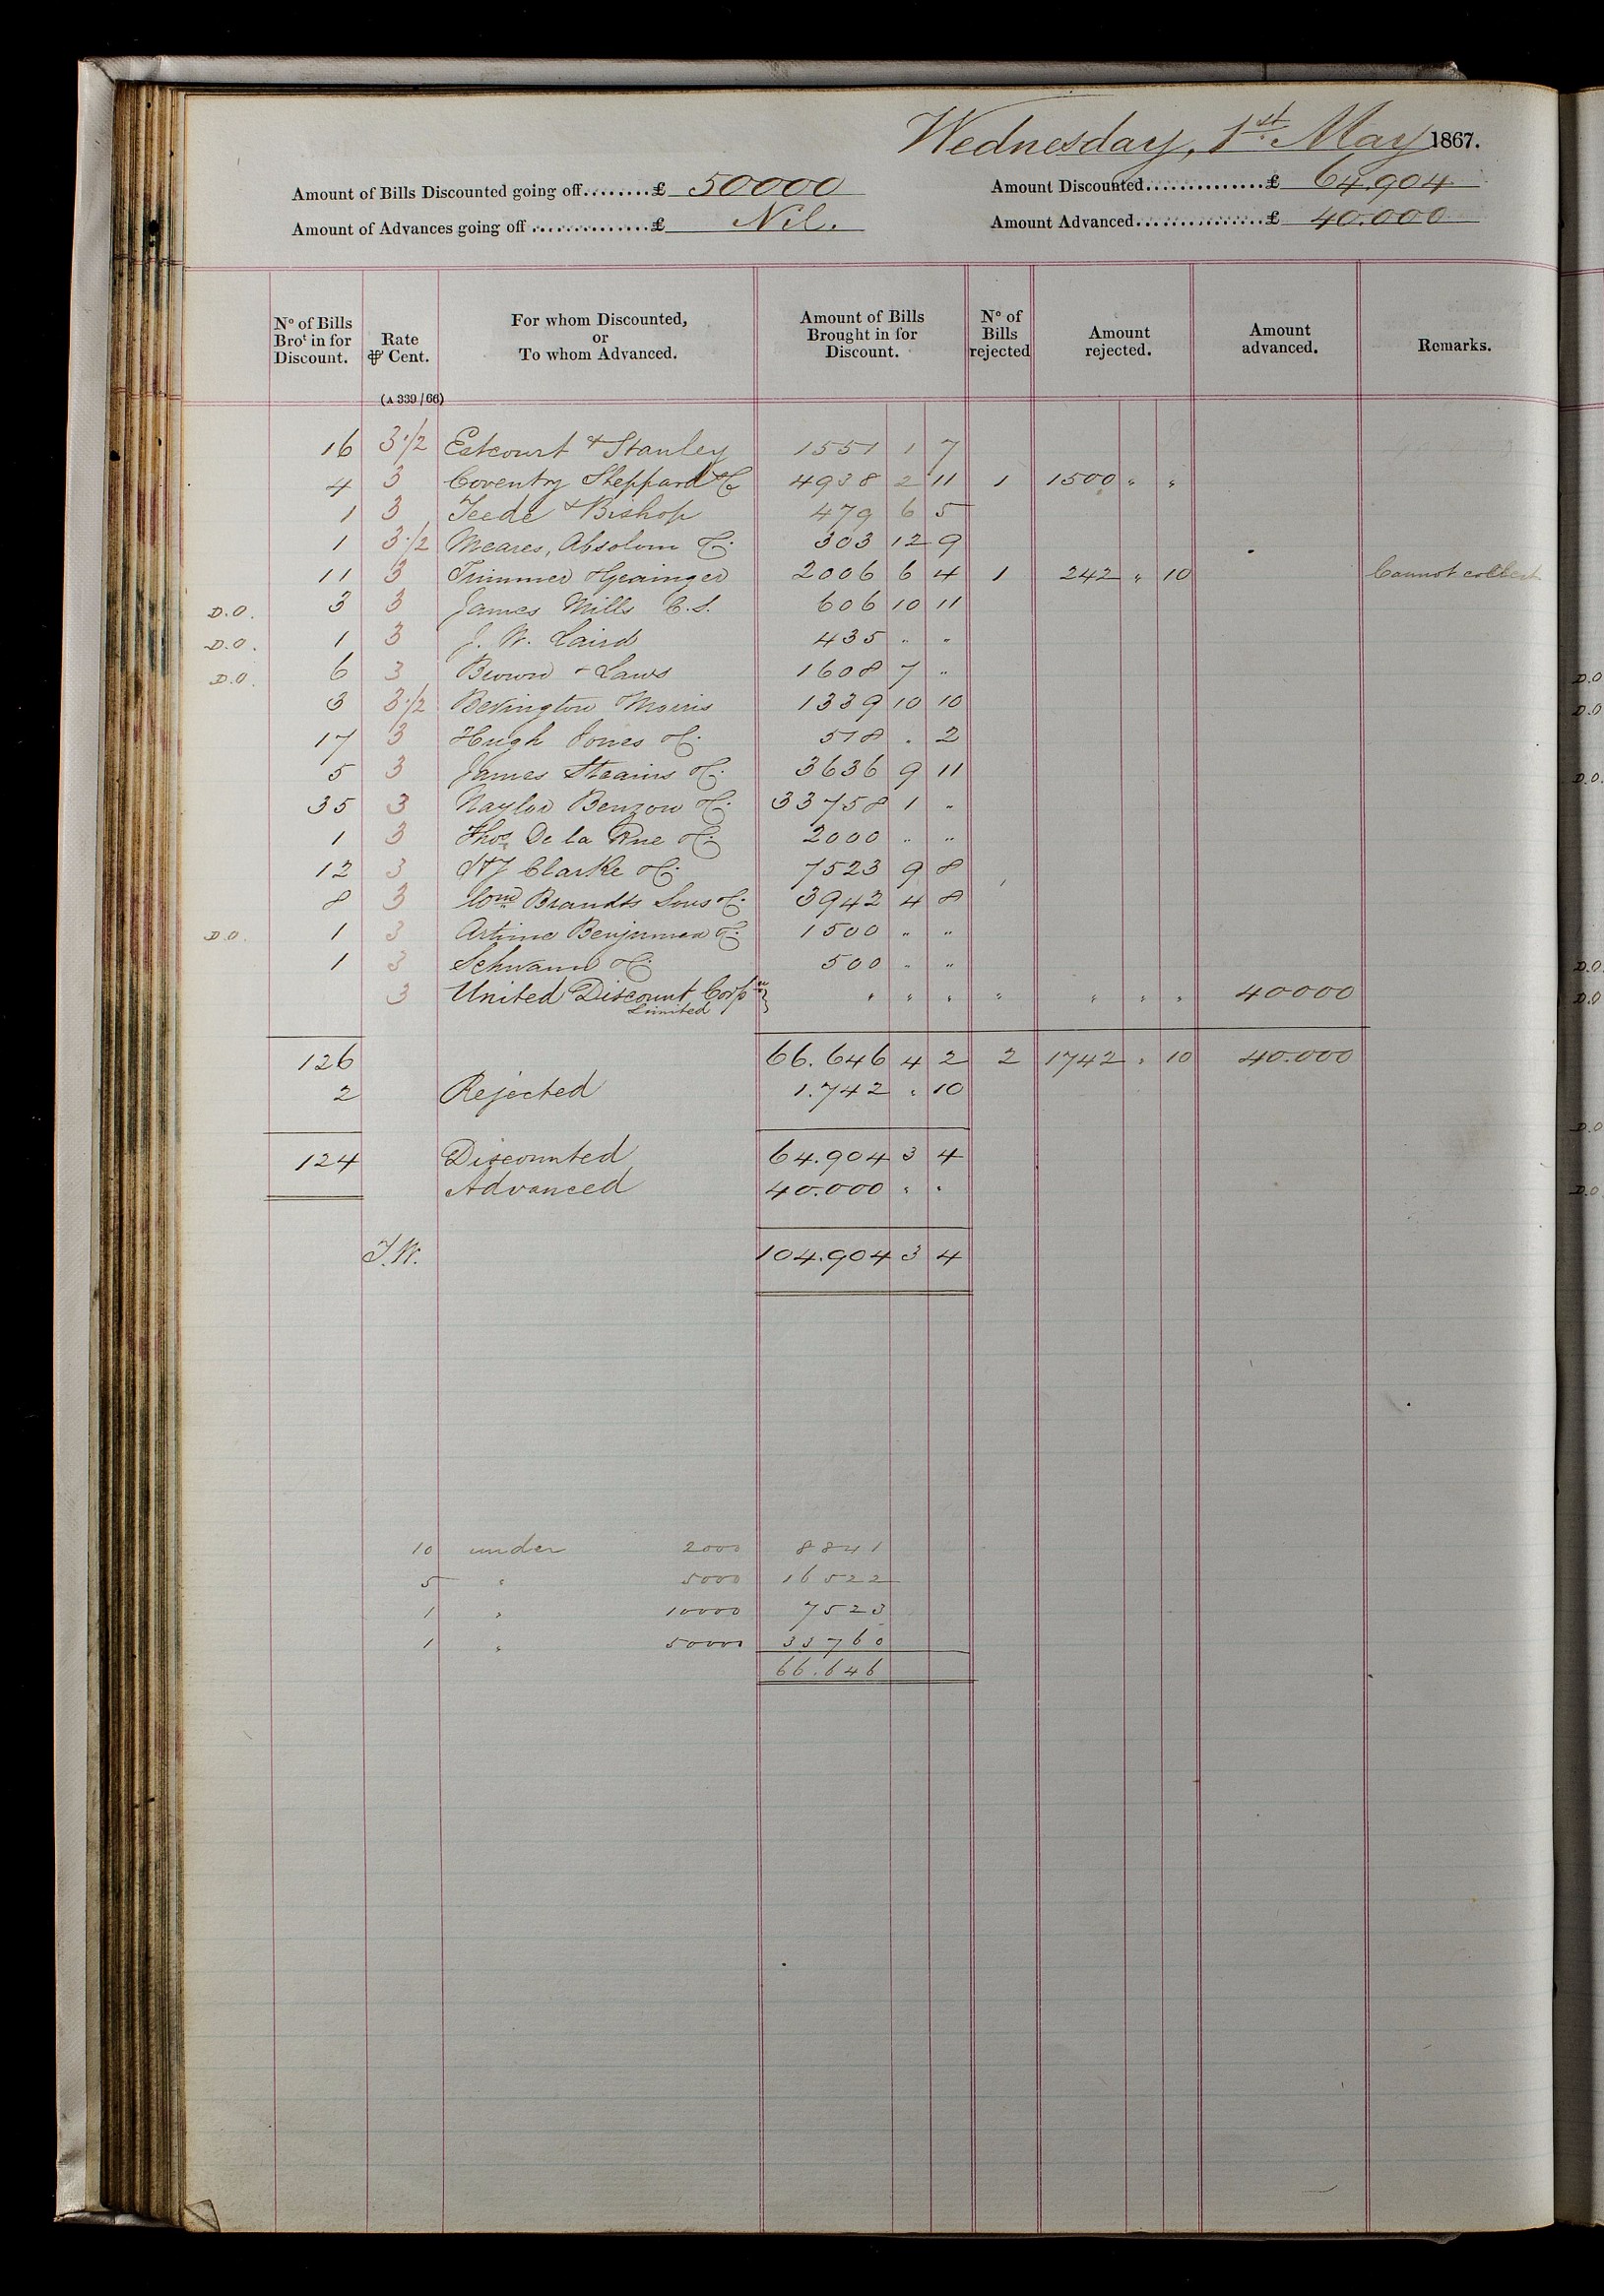 Wednesday, 1st May 1867.
Amount of Bills Discounted going off........£ 50000 Amount Discounted...............£ 64.904
Amount of Advances going off ...............£ Nil. Amount Advanced................£ 40.000
No of Bills Brot in for Discount. Rate ⅌ Cent. For whom Discounted, or To whom Advanced. Amount of Bills Brought in for Discount. No of Bills rejected Amount rejected. Amount advanced. Remarks.
(A 339/66)
16 3 1/2 Estcourt & Stanley 1551 1 7
4 3 Coventry Sheppard & Co 4938 2 11 1 1500 " "
1 3 Teede & Bishop 479 6 5
1 3 1/2 Meares, Absolom & Co. 303 12 9
11 3 Trimmer & Grainger 2006 6 4 1 242 " 10 Cannot collect
D.O. 3 3 James Mills C.S. 606 10 11
D.O. 1 3 J. W. Laird 435 " "
D.O. 6 3 Brown & Laws 1608 7 "
3 3 1/2 Bevington Morris 1339 10 10
17 3 Hugh Jones & Co. 518 . 2
5 3 James Steains & Co. 3636 9 11
35 3 Naylor Benzon & Co. 33758 1 "
1 3 Thos De la Rue & Co. 2000 " "
12 3 Clarke & Co. 7523 9 8
8 3 Wm Brandts Sons & Co. 3942 4 8
D.O. 1 3 1500 " "
1 3 Schwann & Co. 500 " "
3 United Discount Corpn Limited } " " " " " " " 40000
126 66.646 4 2 2 1742 " 10 40.000
2 Rejected 1.742 " 10
124 Discounted 64.904 3 4
Advanced 40.000 " "
J.W. 104.904 3 4
10 under 2000 8841
5 " 5000 16522
1 " 10000 7523
1 " 50000 33760
66.646
D.O
D.O
D.O.
D.O
D.O
D.O
D.O